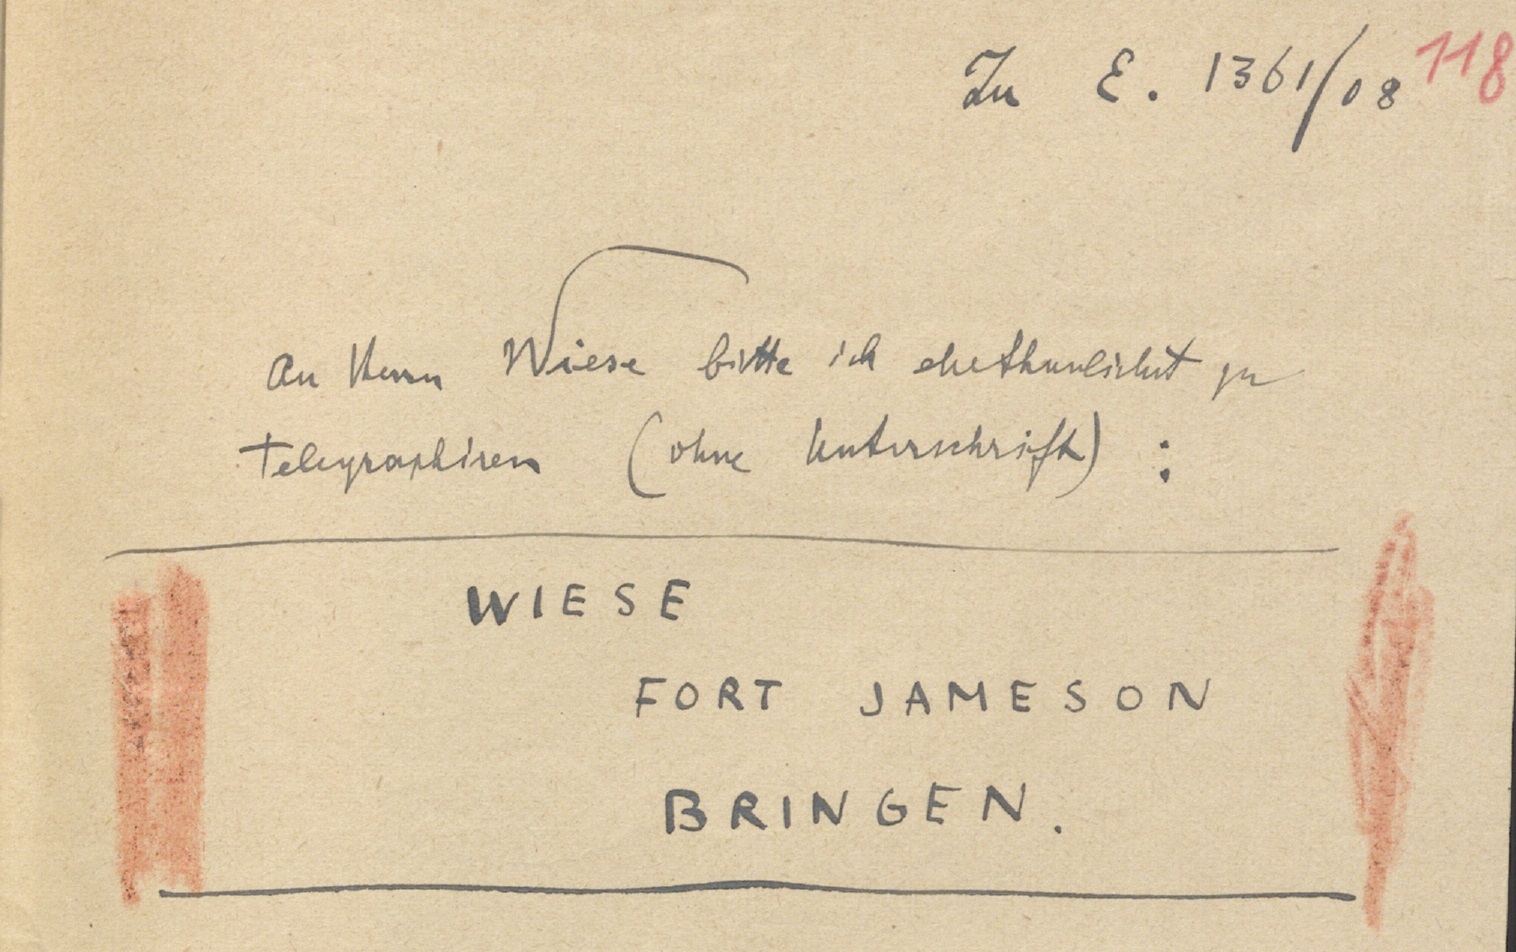 Zu E. 1361/08 118
An Herrn Wiese bitte ich ehethunlichst zu
telegraphiren (ohne Unterschrift) :
WIESE
FORT JAMESON
BRINGEN.